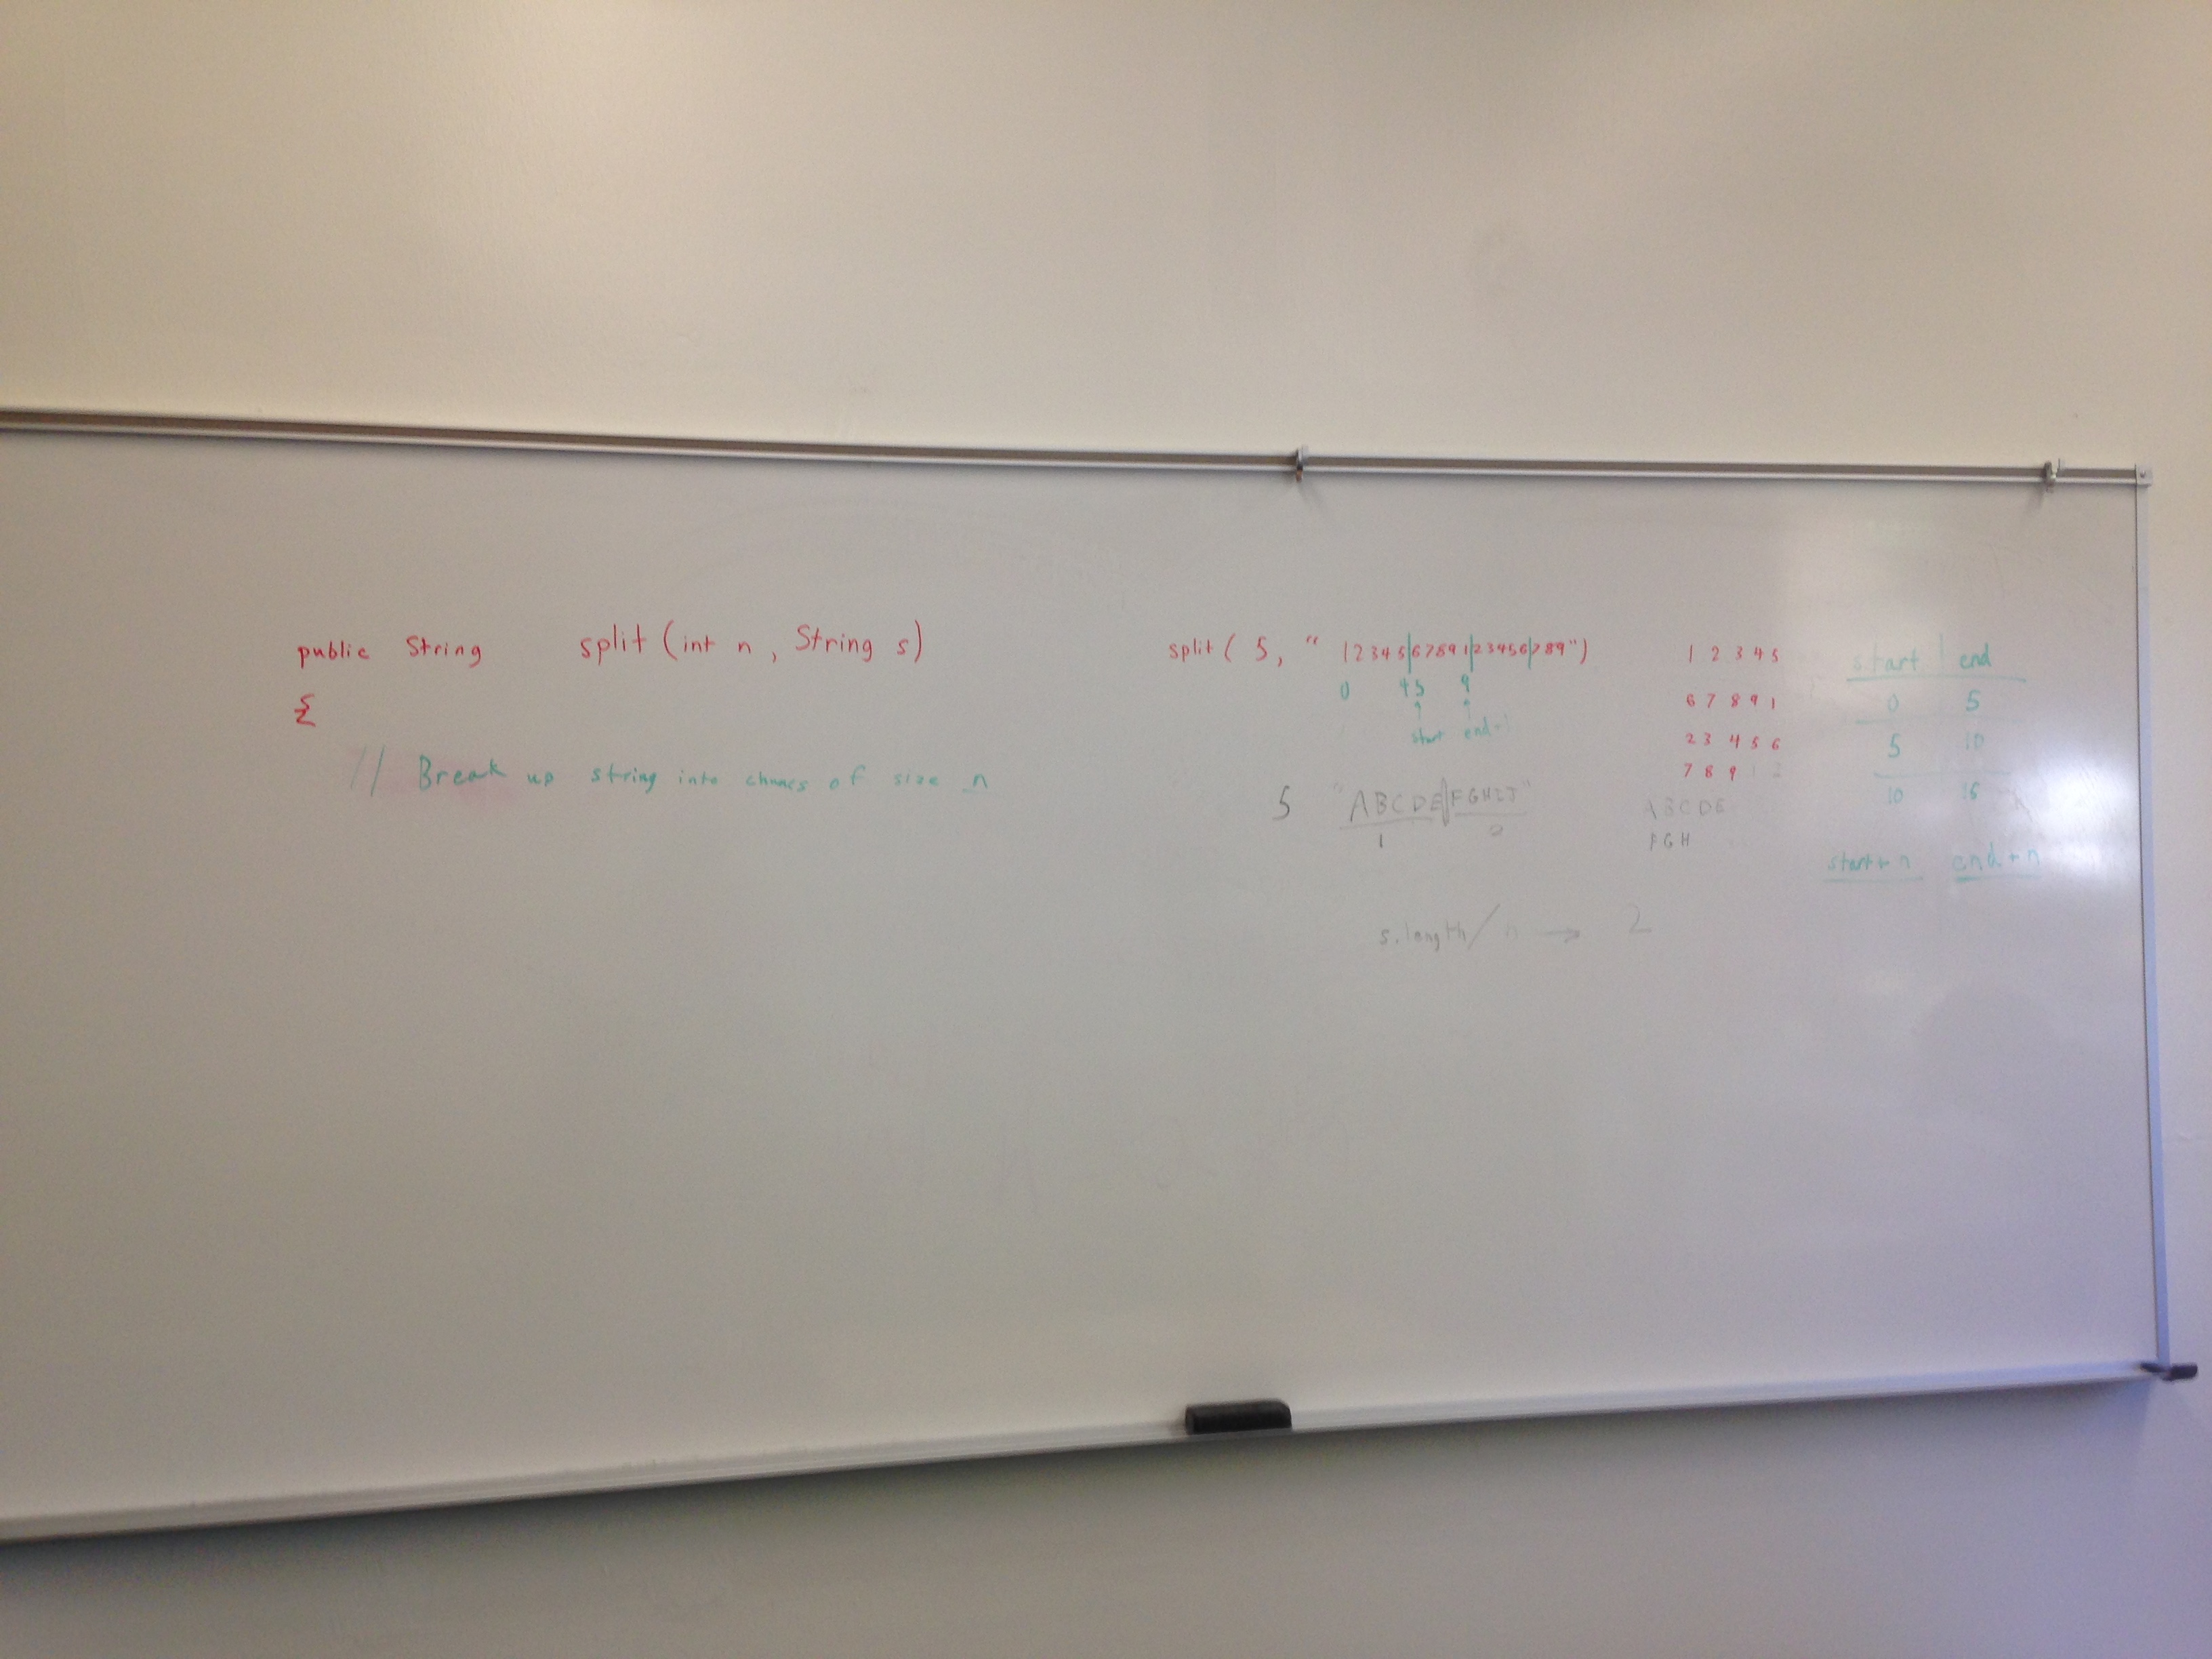 public String split (int n, String s)
{
// Break up string into chuncs of size n
split ( 5, " 1 2 3 4 5|6 7 8 9 1|2 3 4 5 6|7 8 9 ")
0 4 5 9
start end-1
5 "ABCDE|FGHIJ"
1 2
s.length / n → 2
1 2 3 4 5
6 7 8 9 1
2 3 4 5 6
7 8 9 1 2
A B C D E
F G H
start end
0 5
5 10
10 15
start + n end + n